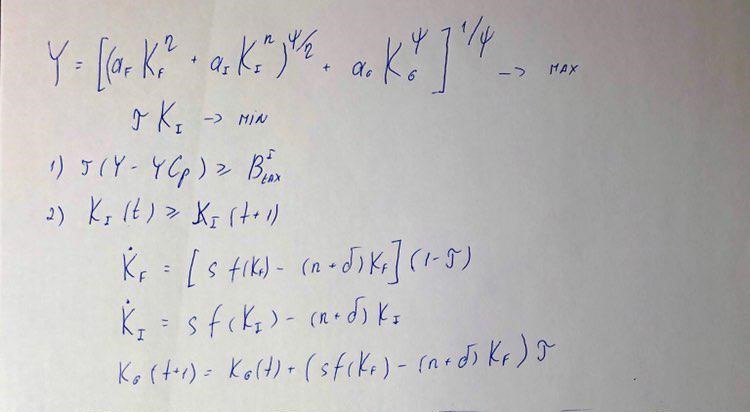 Y = [(a_F K_F^η + a_I K_I^η)^ψ/η + a_G K_G^ψ]^1/ψ → MAX
τ K_I → MIN
1) τ(Y - YC_p) ≥ B^I_tax
2) K_I(t) ≥ K_I(t+1)
K̇_F = [s f(K_F) - (n+δ)K_F](1-τ)
K̇_I = s f(K_I) - (n+δ)K_I
K_G(t+1) = K_G(t) + (s f(K_F) - (n+δ)K_F)τ